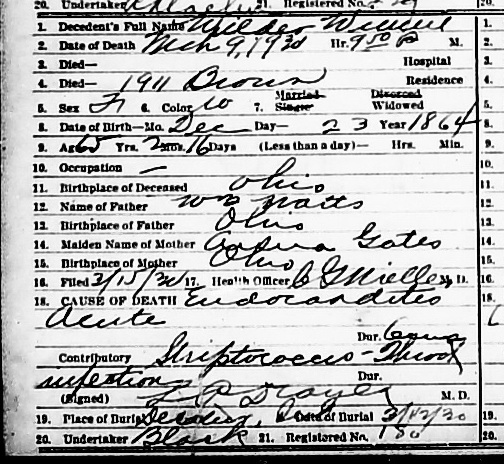 20. Undertaker 21. Registered No.
1. Decedent's Full Name Wilder
2. Date of Death Mch 9, 1930 Hr. 9 50 P M.
3. Died— Hospital
4. Died— 1911 Brown Residence
5. Sex F 6. Color W 7. Married Single Divorced Widowed
8. Date of Birth—Mo. Dec Day— 23 Year 1864
9. Age 65 Yrs. 2 Mos. 16 Days (Less than a day)— Hrs. Min.
10. Occupation —
11. Birthplace of Deceased Ohio
12. Name of Father Wm Watts
13. Birthplace of Father Ohio
14. Maiden Name of Mother Gates
15. Birthplace of Mother Ohio
16. Filed 3/15/30 17. Health Officer C G Nieller M. D.
18. CAUSE OF DEATH Endocarditis
Acute
Dur.
Contributory Streptococcus - Throat
infection Dur.
(Signed) M. D.
19. Place of Burial Date of Burial
20. Undertaker Black 21. Registered No. 130